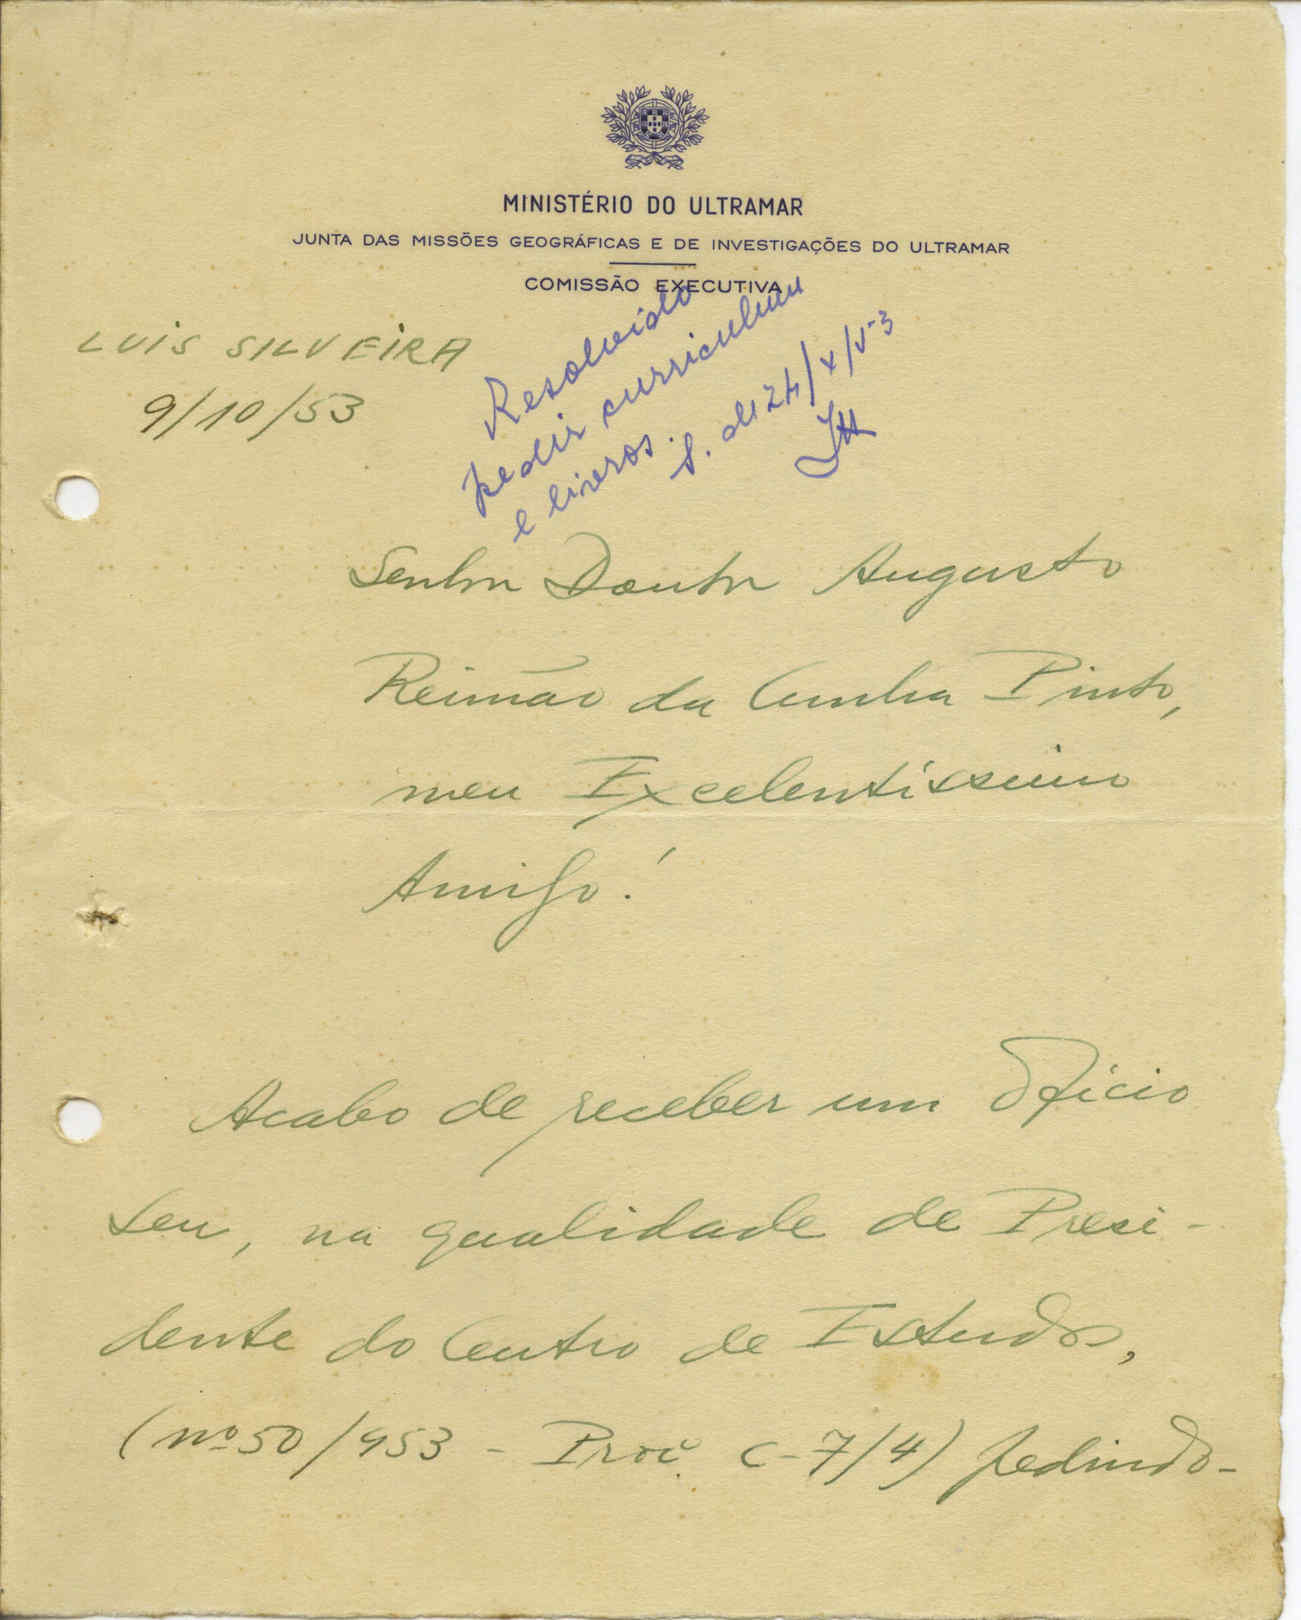 MINISTÉRIO DO ULTRAMAR
JUNTA DAS MISSÕES GEOGRÁFICAS E DE INVESTIGAÇÕES DO ULTRAMAR
COMISSÃO EXECUTIVA
LUIS SILVEIRA
9/10/53
Resolvido
pedir curriculum
e livros.
S. de 24/X/53
Senhor Doutor Augusto
Reimão da Cunha Pinto,
meu Excelentíssimo
Amigo!
Acabo de receber um Ofício
seu, na qualidade de Presi-
dente do Centro de Estudos,
(nº 50/953 - Proc. C-7/4) pedindo-